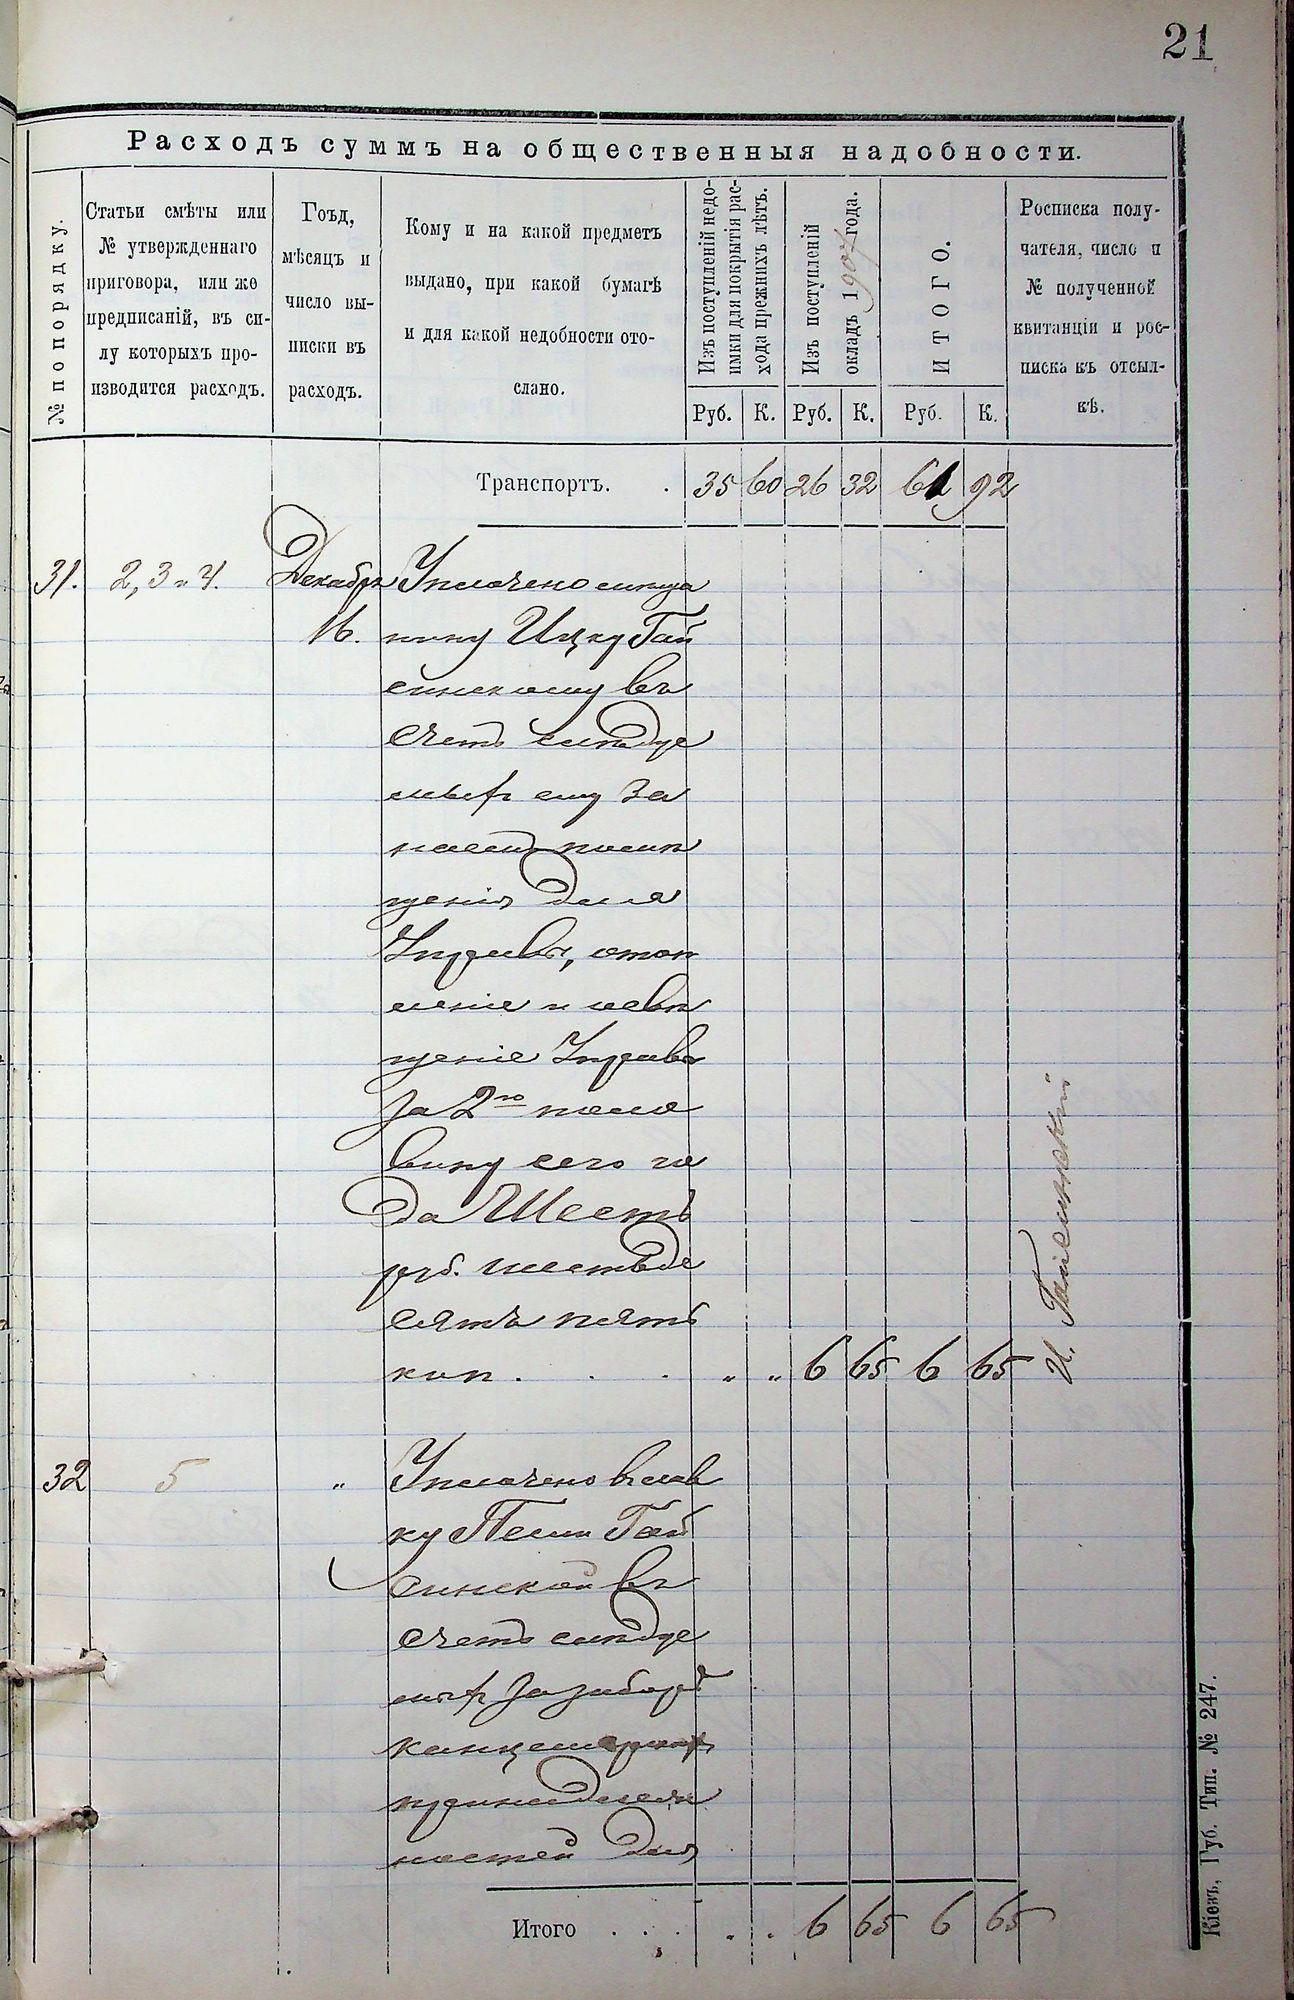 21
Расходъ суммъ на общественныя надобности.
№ по порядку.
Статьи смѣты или
№ утвержденнаго
приговора, или же
предписаній, въ си-
лу которыхъ про-
изводится расходъ.
Гоъд,
мѣсяцъ и
число вы-
писки въ
расходъ.
Кому и на какой предметъ
выдано, при какой бумагѣ
и для какой недобности ото-
слано.
Изъ поступленій недо-
имки для покрытія рас-
хода прежнихъ лѣтъ.
Изъ поступленій
окладъ 1907 года.
ИТОГО.
Росписка полу-
чателя, число и
№ полученной
квитанціи и рос-
писка къ отсыл-
кѣ.
Руб. К. Руб. К. Руб. К.
Транспортъ. . 35 60 26 32 61 92
31. 2, 3 и 4. Декабря Уплочено мѣща
16. нину Ицку Гай
синскому въ
счетъ слѣдуе
мыхъ ему за
наемъ помѣ
щенія для
Управы, отоп
леніе и освѣ
щеніе Управы
за 2ю поло
вину сего го
да Шесть
руб. шестьде
сятъ пять
коп. . . . „ „ 6 65 6 65
И. Гайсинскій
32 5 „ Уплочено въ лав
ку Песи Гай
синской въ
счетъ слѣдуе
мыхъ за заборъ
канцелярскихъ
принадлеж
ностей для
Итого . . . . . 6 65 6 65
Кіевъ, Губ. Тип. № 247.